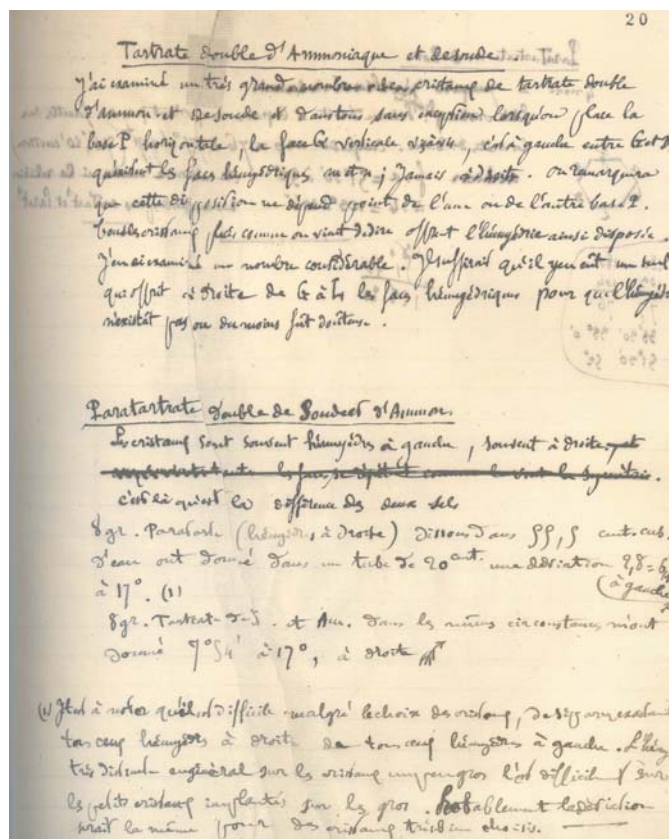 20
Tartrate double d'Ammoniaque et de soude.
J'ai examiné un très grand nombre de cristaux de tartrate double
d'ammon. et de soude et dans tous sans exception lorsqu'on place la
base P horizontale, la face G verticale, c'est à gauche entre G et
les faces hémiédriques m et n ; Jamais à Droite. On remarquera
que cette disposition ne dépend point de l'une ou de l'autre base P.
Tous les cristaux fixés comme on vient de dire offrent l'hémiédrie ainsi disposée.
J'en ai examiné un nombre considérable. Il suffirait qu'il y en eût un seul
qui offrit à droite de G à h les faces hémiédriques pour que l'hémiédrie
n'existât pas ou du moins fût douteuse.
Paratartrate double de Soude et d'Ammon.
Les cristaux sont souvent hémièdres à gauche, souvent à droite,
c'est là qu'est la différence des deux sels
8 gr. Paratarte (hémièdres à droite) dissous dans 55,5 cent. cub.
d'eau ont donné dans un tube de 20 cent. une déviation
à gauche
à 17°. (1)
8 gr. Tartrate de S. et Am. dans les mêmes circonstances m'ont
donné 7°54' à 17°, à droite
(1) Il est à noter qu'il est difficile malgré le choix des cristaux, de séparer
tous ceux hémièdres à droite de tous ceux hémièdres à gauche.
très distincte en général sur les cristaux un peu gros l'est difficil sur
les petits cristaux implantés sur les gros. Probablement la déviation
serait la même pour des cristaux très bien choisis.